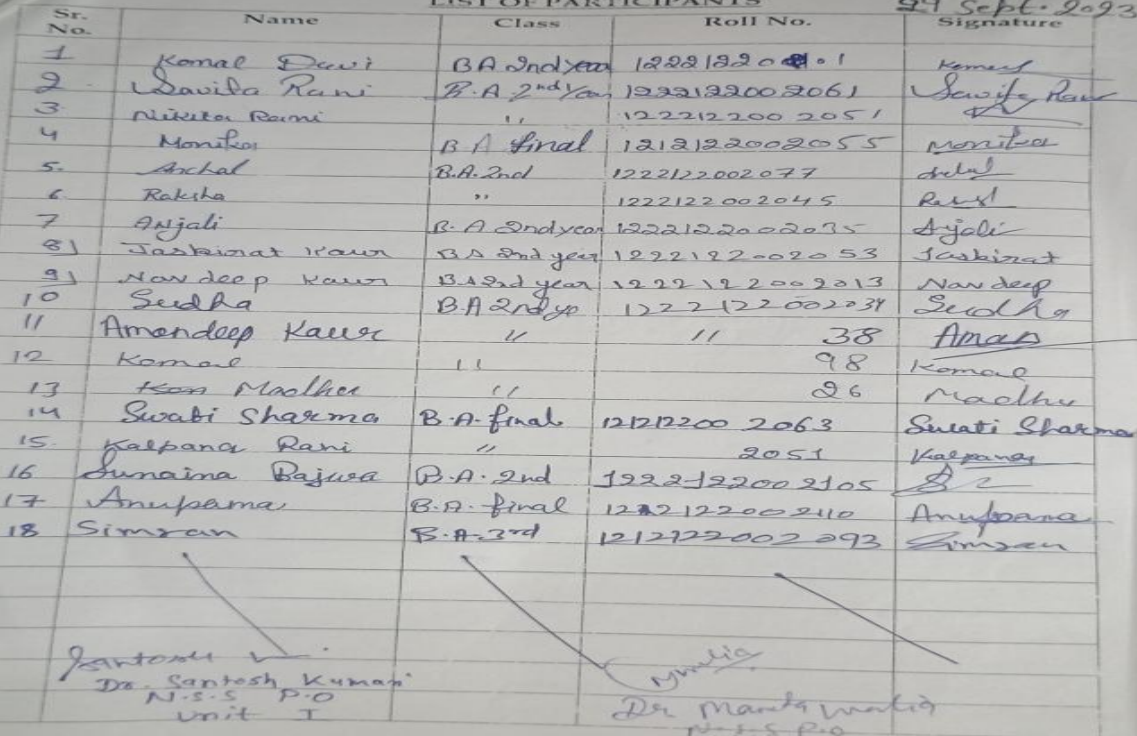 LIST OF PARTICIPANTS
Sept. 2023
Sr. No. Name Class Roll No. Signature
1 Komal Devi BA 2nd year Komal
2 Savita Rani B.A 2nd Year 1222122002061 Savita Rani
3 Nikita Rani " 1222122002051
4 Monika B A final 1212122002055 Monika
5. Anchal B.A. 2nd 1222122002077
6 Raksha " 1222122002045
7 Anjali B.A 2nd year 1222122002035 Anjali
8) Jaskirat Kaur BA 2nd year 1222122002053 Jaskirat
9) Navdeep Kaur B.A 2nd year 1222122002013 Navdeep
10 Sudha B.A 2nd ye 1222122002034 Sudha
11 Amandeep Kaur " " 38 Aman
12 Komal " 98 Komal
13 Madhu " 26 Madhu
14 Swati Sharma B.A. final 1212122002063 Swati Sharma
15. Kalpana Rani " 2051 Kalpana
16 Sunaina B.A. 2nd 1222122002105
17 Anupama B.A. final 2110 Anupama
18 Simran B.A. 3rd 1212122002093 Simran
Dr. Santosh Kumari
N.S.S P.O
Unit I
Dr Mamta Walia
N.S.S P.O